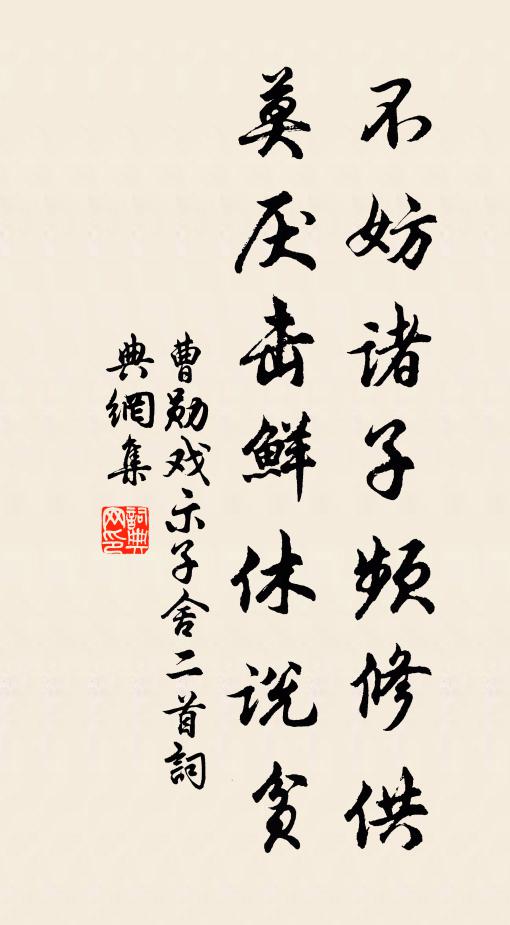 不妨诸子频修供
莫厌击鲜休说贫
曹勋戏示子舍二首詞
典網集
詞典
网印